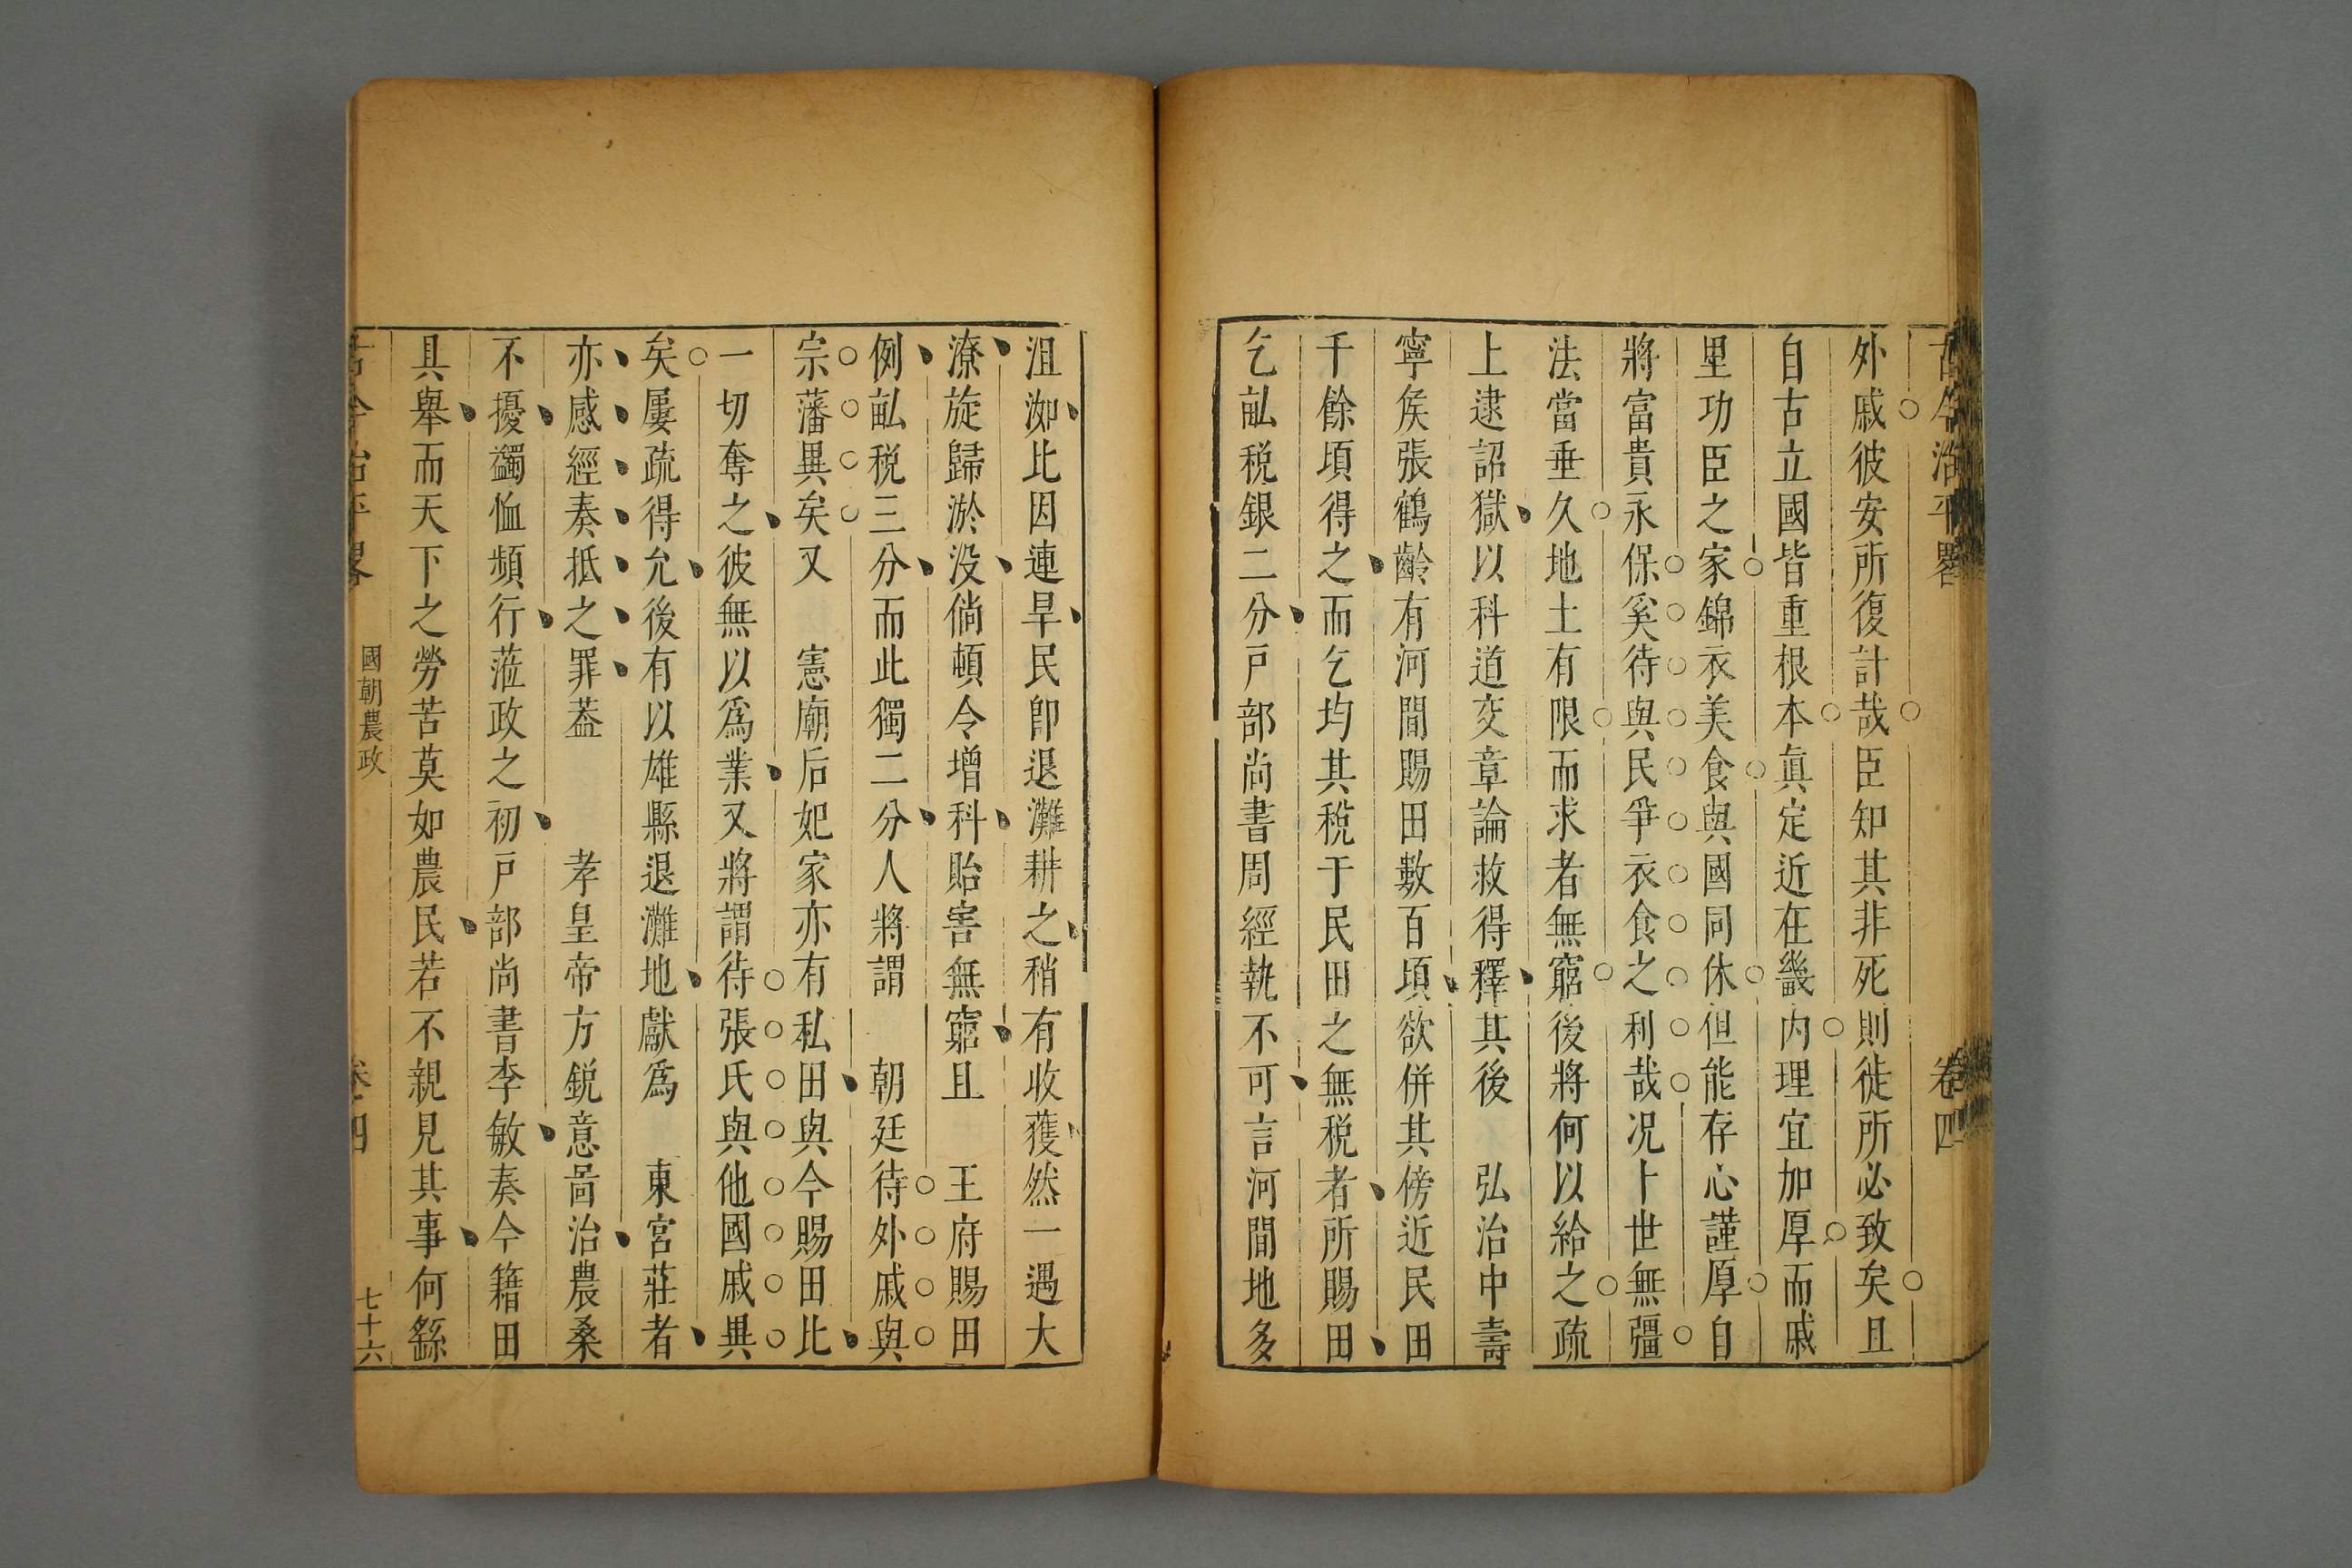 古今治平畧 卷四
外戚彼安所復計哉臣知其非死則徙所必致矣且
自古立國皆重根本眞定近在畿内理宜加厚而戚
里功臣之家錦衣美食與國同休但能存心謹厚自
將富貴永保奚待與民爭衣食之利哉况卜世無彊
法當垂久地土有限而求者無窮後將何以給之疏
上逮詔獄以科道交章論救得釋其後 弘治中壽
寧矦張鶴齡有河間賜田數百頃欲併其傍近民田
千餘頃得之而乞均其稅于民田之無稅者所賜田
乞畝稅銀二分戸部尚書周經執不可言河間地多
沮洳比因連旱民卽退灘耕之稍有收獲然一遇大
潦旋歸淤没倘頓令增科貽害無窮且 王府賜田
例畝稅三分而此獨二分人將謂 朝廷待外戚與
宗藩異矣又 憲廟后妃家亦有私田與今賜田比
一切奪之彼無以爲業又將謂待張氏與他國戚異
矣屢疏得允後有以雄縣退灘地獻爲 東宮莊者
亦感經奏抵之罪葢 孝皇帝方銳意啚治農桑
不擾蠲恤頻行蒞政之初戸部尚書李敏奏今籍田
具舉而天下之勞苦莫如農民若不親見其事何繇
古今治平畧 國朝農政 卷四 七十六